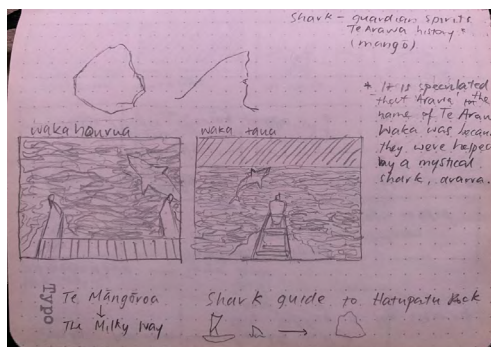 Shark - guardian spirits
Te Arawa history *
(mangō)
* It is speculated
that Arawa, in the
name of Te Arawa
Waka was because
they were helped
by a mystical
shark, arawa.
waka hourua
waka taua
Typo
Te Māngōroa
↓
The Milky Way
Shark guide to Hatupatu Rock
→